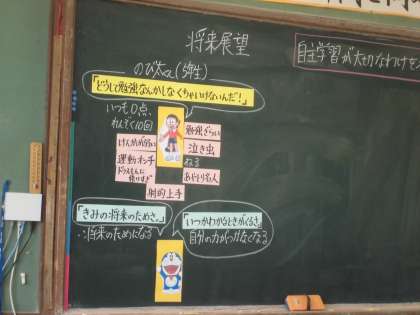 将来展望
自主学習が大切なわけをモ
のび太(5年生)
「どうして勉強なんかしなくちゃいけないんだ!」
いつも0点、
れんぞく10回
勉強ぎらい
泣き虫
運動オンチ
ねる
あやとり名人
射的上手
「きみの将来のためさ。」
「いつかわかるときがくるさ」
∴将来のためになる
自分の力がつかなくなる